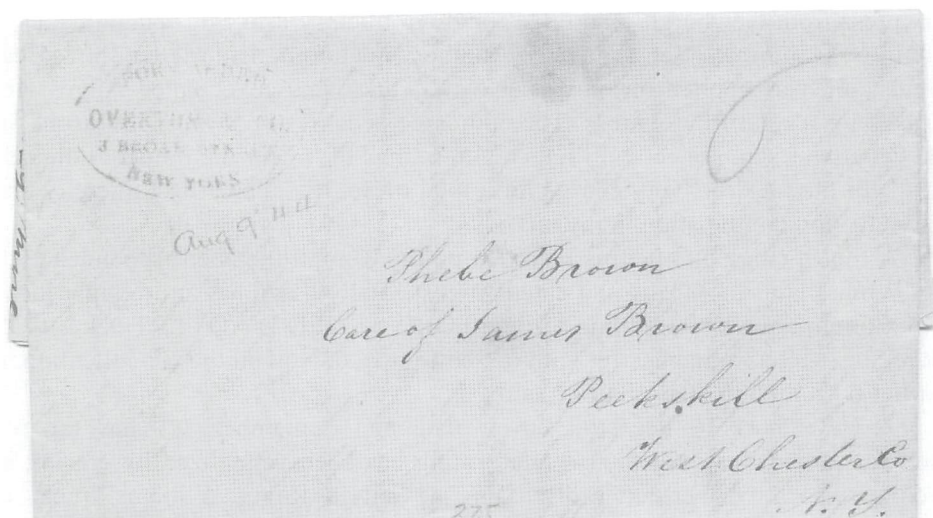 OVERTON & CO.
3 BROAD STREET
NEW YORK
Aug 9
6
Phebe Brown
Care of James Brown
Peekskill
West Chester Co
N. Y.
275